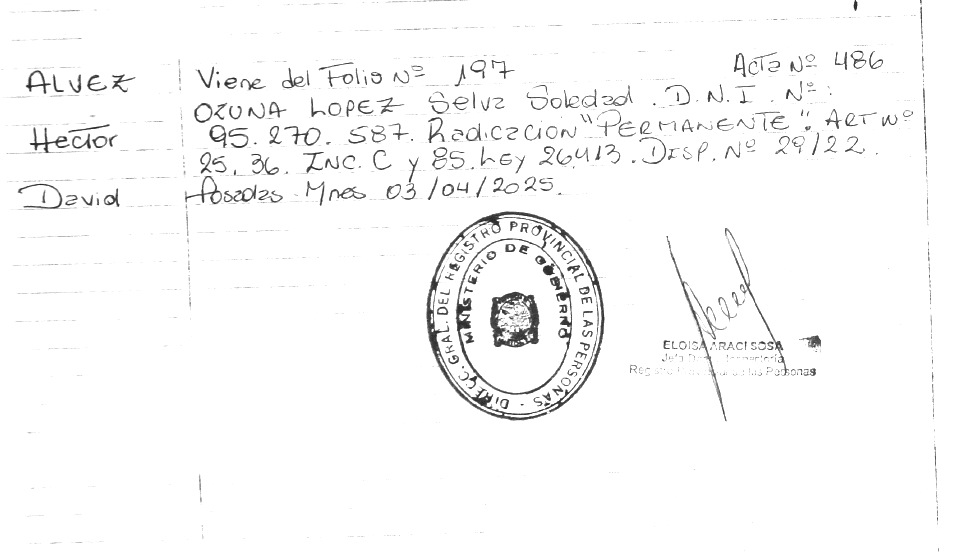 ALVEZ
Hector
David
Viene del Folio Nº 197
Acta Nº 486
OZUNA LOPEZ Selva Soledad. D.N.I. Nº:
95.270.587. Radicacion "PERMANENTE". ART Nº
25, 36. INC. C y 85. Ley 26413. DISP. Nº 29/22.
Posadas Mnes 03/04/2025.
DIRECC. GRAL. DEL REGISTRO PROVINCIAL DE LAS PERSONAS -
MINISTERIO DE GOBIERNO
ELOISA ARACI SOSA
Jefa
Registro de las Personas